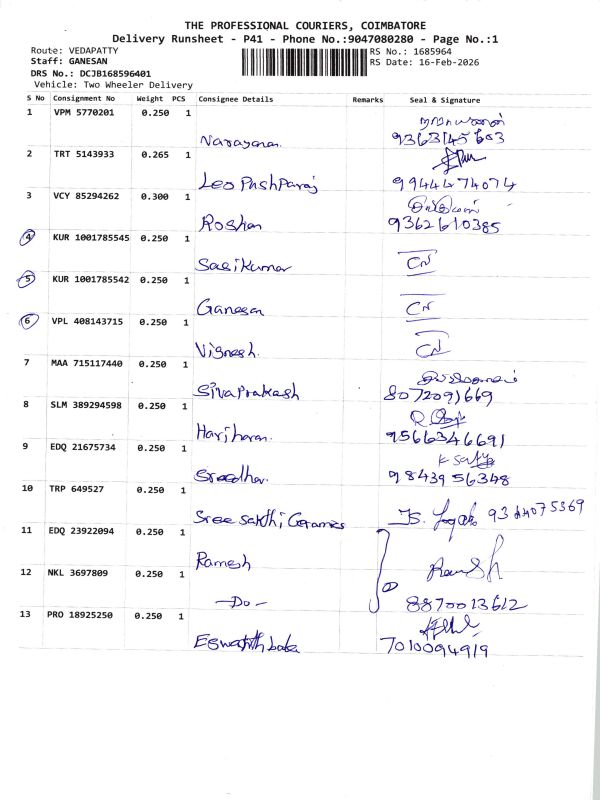 THE PROFESSIONAL COURIERS, COIMBATORE
Delivery Runsheet - P41 - Phone No.:9047080280 - Page No.:1
Route: VEDAPATTY RS No.: 1685964
Staff: GANESAN RS Date: 16-Feb-2026
DRS No.: DCJB168596401
Vehicle: Two Wheeler Delivery
S No Consignment No Weight PCS Consignee Details Remarks Seal & Signature
1 VPM 5770201 0.250 1
Narayanan 9363145603
2 TRT 5143933 0.265 1
Leo Pushparaj 9944474074
3 VCY 85294262 0.300 1
Roshan 9362610385
4 KUR 1001785545 0.250 1
Sasikumar CN
5 KUR 1001785542 0.250 1
Ganesan CN
6 VPL 408143715 0.250 1
Vignesh. CN
7 MAA 715117440 0.250 1
Sivaprakash 8072091669
8 SLM 389294598 0.250 1
Hariharan. 9566346691
9 EDQ 21675734 0.250 1
Sreedhar. 9843956348
10 TRP 649527 0.250 1
Sree Sakthi Ceramics 9364075369
11 EDQ 23922094 0.250 1
Ramesh
12 NKL 3697809 0.250 1
-Do- 8870013612
13 PRO 18925250 0.250 1
7010094919